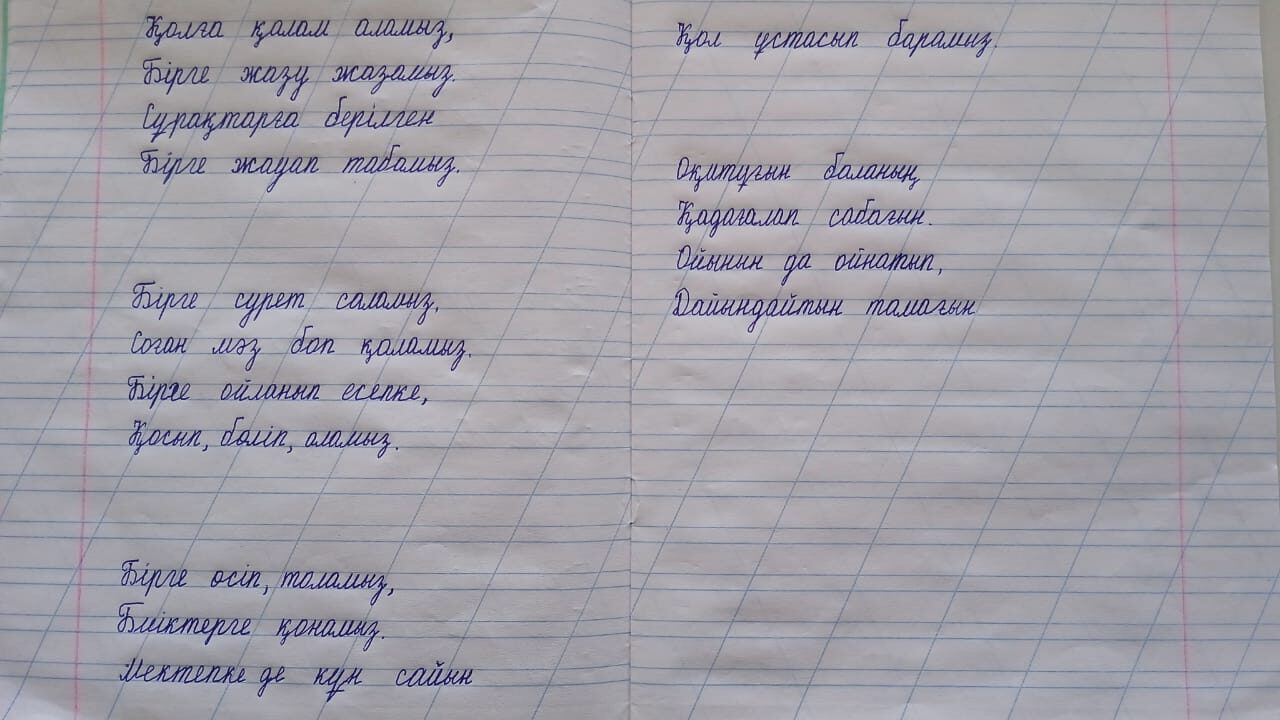 Қолға қалам аламыз,
Бірге жазу жазамыз.
Сұрақтарға берілген
Бірге жауап табамыз.
Бірге сурет саламыз.
Соған мәз боп қаламыз.
Бірге ойланып есепке,
Қосып, бөліп, аламыз.
Бірге өсіп, толамыз,
Биіктерге қонамыз.
Мектепке де күн сайын
Қол ұстасып барамыз.
Оқитұғын баланың
Қадағалап сабағын.
Ойынын да ойнатып,
Дайындайтын тамағын